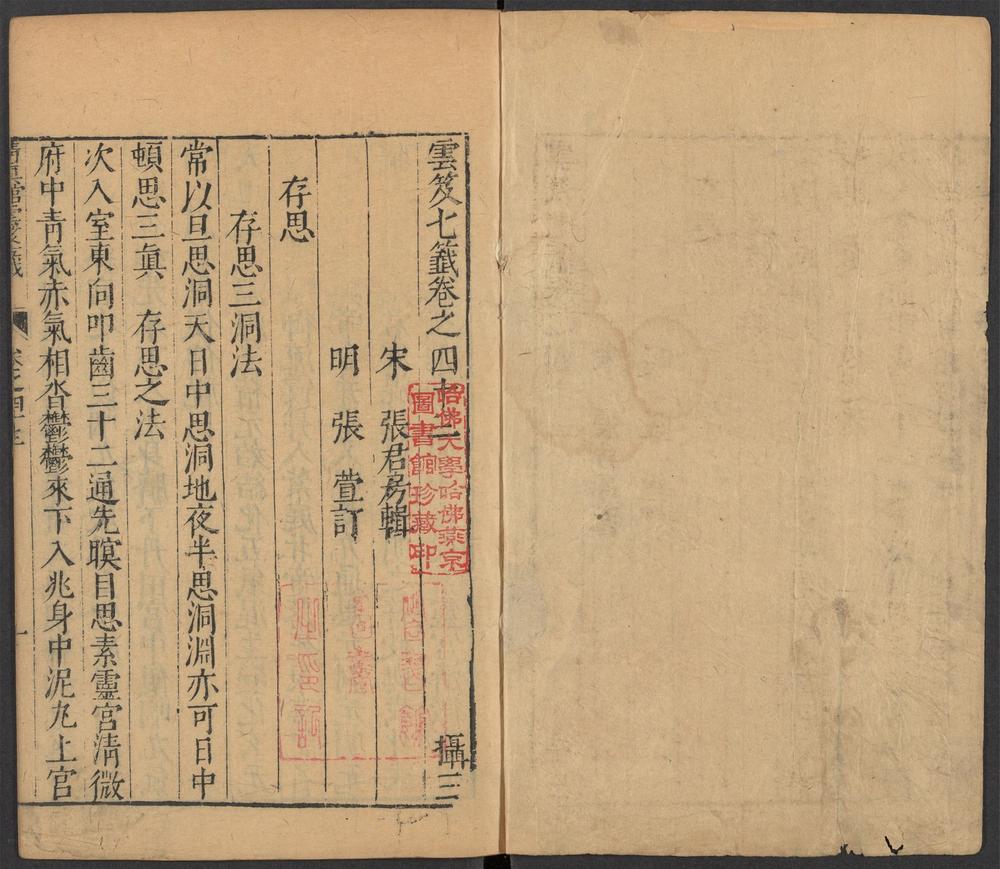 雲笈七籤卷之四十三
攝三
宋 張君房輯
明 張萱訂
存思
存思三洞法
常以旦思洞天日中思洞地夜半思洞淵亦可日中
頓思三眞 存思之法
次入室東向叩齒三十二通先瞑目思素靈宮淸微
府中靑氣赤氣相沓鬱鬱來下入兆身中泥丸上宮
哈佛大學哈佛燕京
圖書館珍藏印